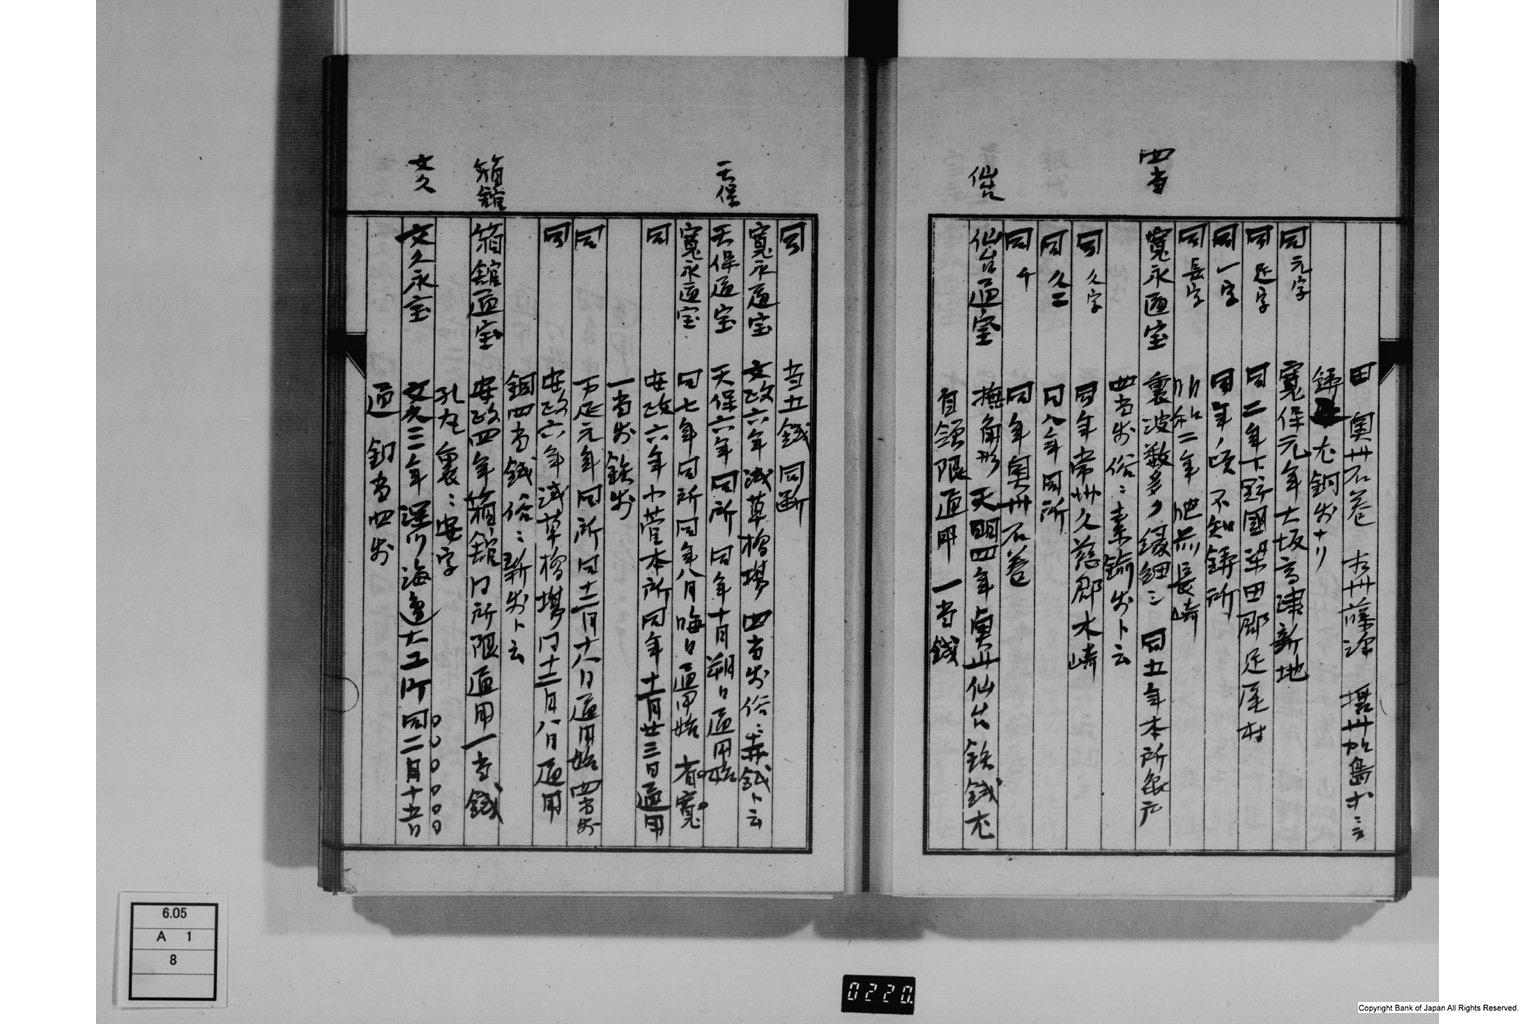 四当
仙台
同 奥州石巻 本州藤沢 摂州加島
鋳 尤銅銭ナリ
同 元字 寛保元年大坂高津新地
同 足字 同二年下野國梁田郡足尾村
同 一字 同年頃不知鋳所
同 長字 明和二年肥前長崎
寛永通宝 裏波数多ノ縵細三 同五年本所亀戸
四当銭俗ニ真鍮銭ト云
同 久字 同年常州久慈郡木崎
同 久二 同八年同所
同 千 同年奥州石巻
仙台通宝 撫角形天明四年奥州仙台鉄銭尤
首領限通用 一当銭
天保
箱館
文久
同 当五銭同断
寛永通宝 文政六年浅草橋場四当銭俗ニ赤銭ト云
天保通宝 天保六年同所同年十月朔日通用始
寛永通宝 同七年同所同年八月晦日通用始 有寛
同 安政六年小菅本所同年十一月廿三日通用
一当銭鉄銭
同 万延元年同所同十二月十八日通用始四当銭
同 安政六年浅草橋場同十二月八日通用
銅四当銭俗ニ新銭ト云
箱館通宝 安政四年箱館同所限通用一当銭
孔丸 裏ニ安字
文久永宝 文久三年深川海邊大工町同二月十五日
通 銅当四銭
6.05
A 1
8
0220.
Copyright Bank of Japan All Rights Reserved.